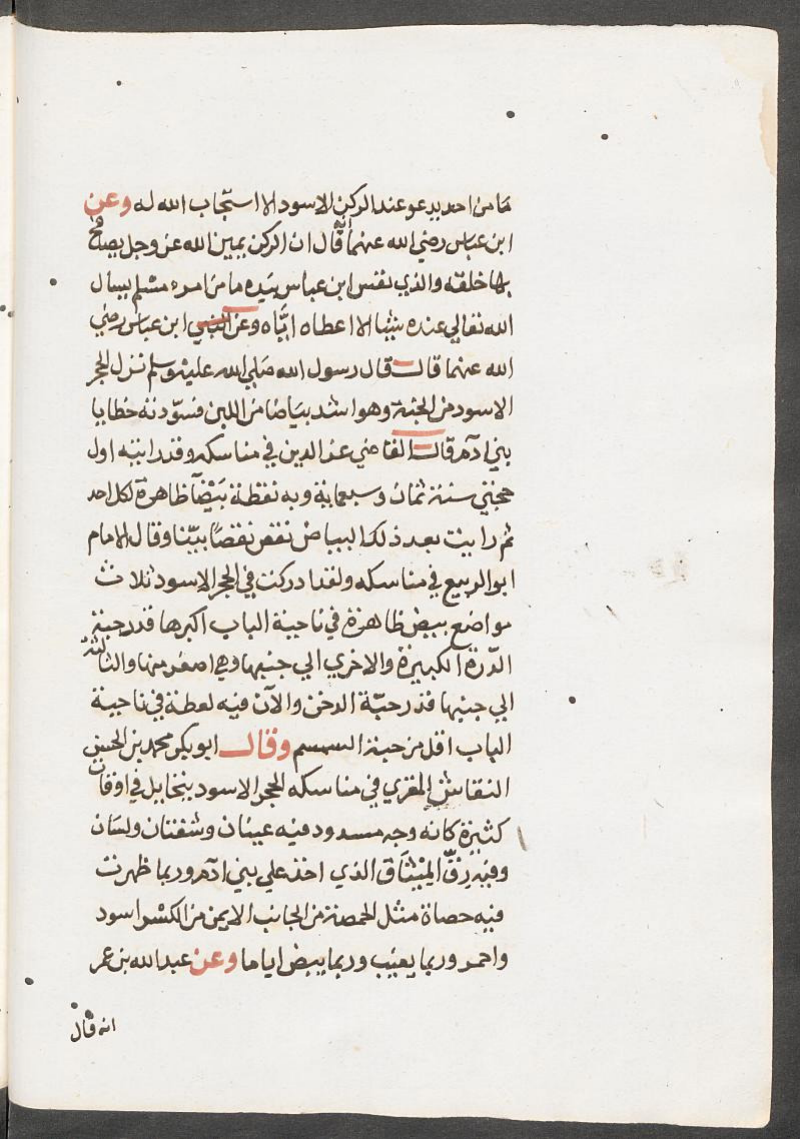 ما من احد يدعو عند الركن الاسود الا استجاب الله له وعن
ابن عباس رضي الله عنهما انه قال ان الركن يمين الله عز وجل يصافح
بها خلقه والذي نفس ابن عباس بيده ما من امرء مسلم يسال
الله تعالي عنده شيئا الا اعطاه اياه وعن النبي ابن عباس رضي
الله عنهما قال قال رسول الله صلي الله عليه وسلم نزل الحجر
الاسود من الجنة وهو اشد بياضا من اللبن فسودته خطايا
بني ادم قال القاضي عز الدين في مناسكه وقد رايته اول
حجتي سنة ثمان وسبعماية وبه نقطة بيضآ ظاهرة لكل احد
ثم رايت بعد ذلك البياض نقص نقصا بينا وقال الامام
ابو الربيع في مناسكه ولقد ادركت في الحجر الاسود ثلاث
مواضع بيض ظاهرة في ناحية الباب اكبرها قدر حبة
الذرة الكبيرة والاخري الي جنبها وهي اصغر منها والثالثة
الي جنبها قدر حبة الدخن والآن فيه لعطة في ناحية
الباب اقل من حبة السمسم وقال ابو بكر محمد بن الحسن
النقاش المقري في مناسكه للحجر الاسود يتخايل في اوقات
كثيرة كانه وجه مسدود فيه عينان وشفتان ولسان
وفيه رق الميثاق الذي اخذ علي بني ادم وربما ظهرت
فيه حصاة مثل الحمصة من الجانب الايمن من الكسر اسود
واحمر وربما يغيب وربما يبيض اياما وعن عبد الله بن عمر
انه قال